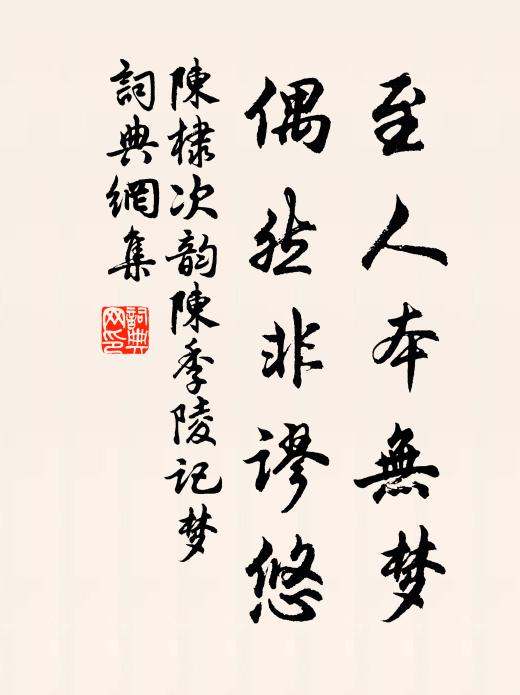 至人本無梦
偶然非謬悠
陳棣次韵陳季陵记梦
詞典網集
詞典网印